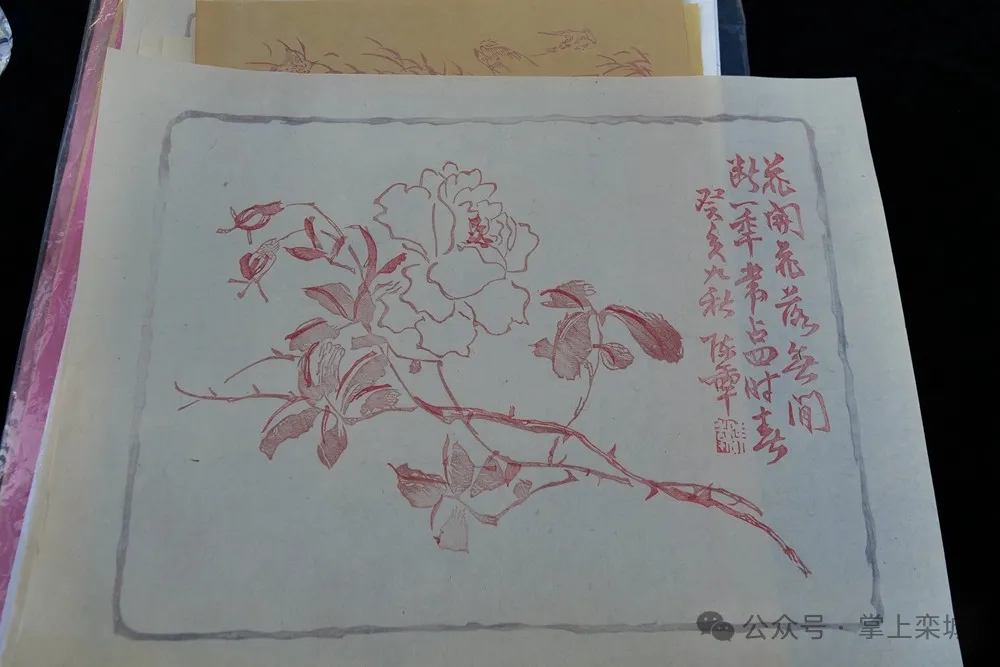 花開花落無间
断一年常占四时春
癸亥九秋 陈
公众号 · 掌上栾城